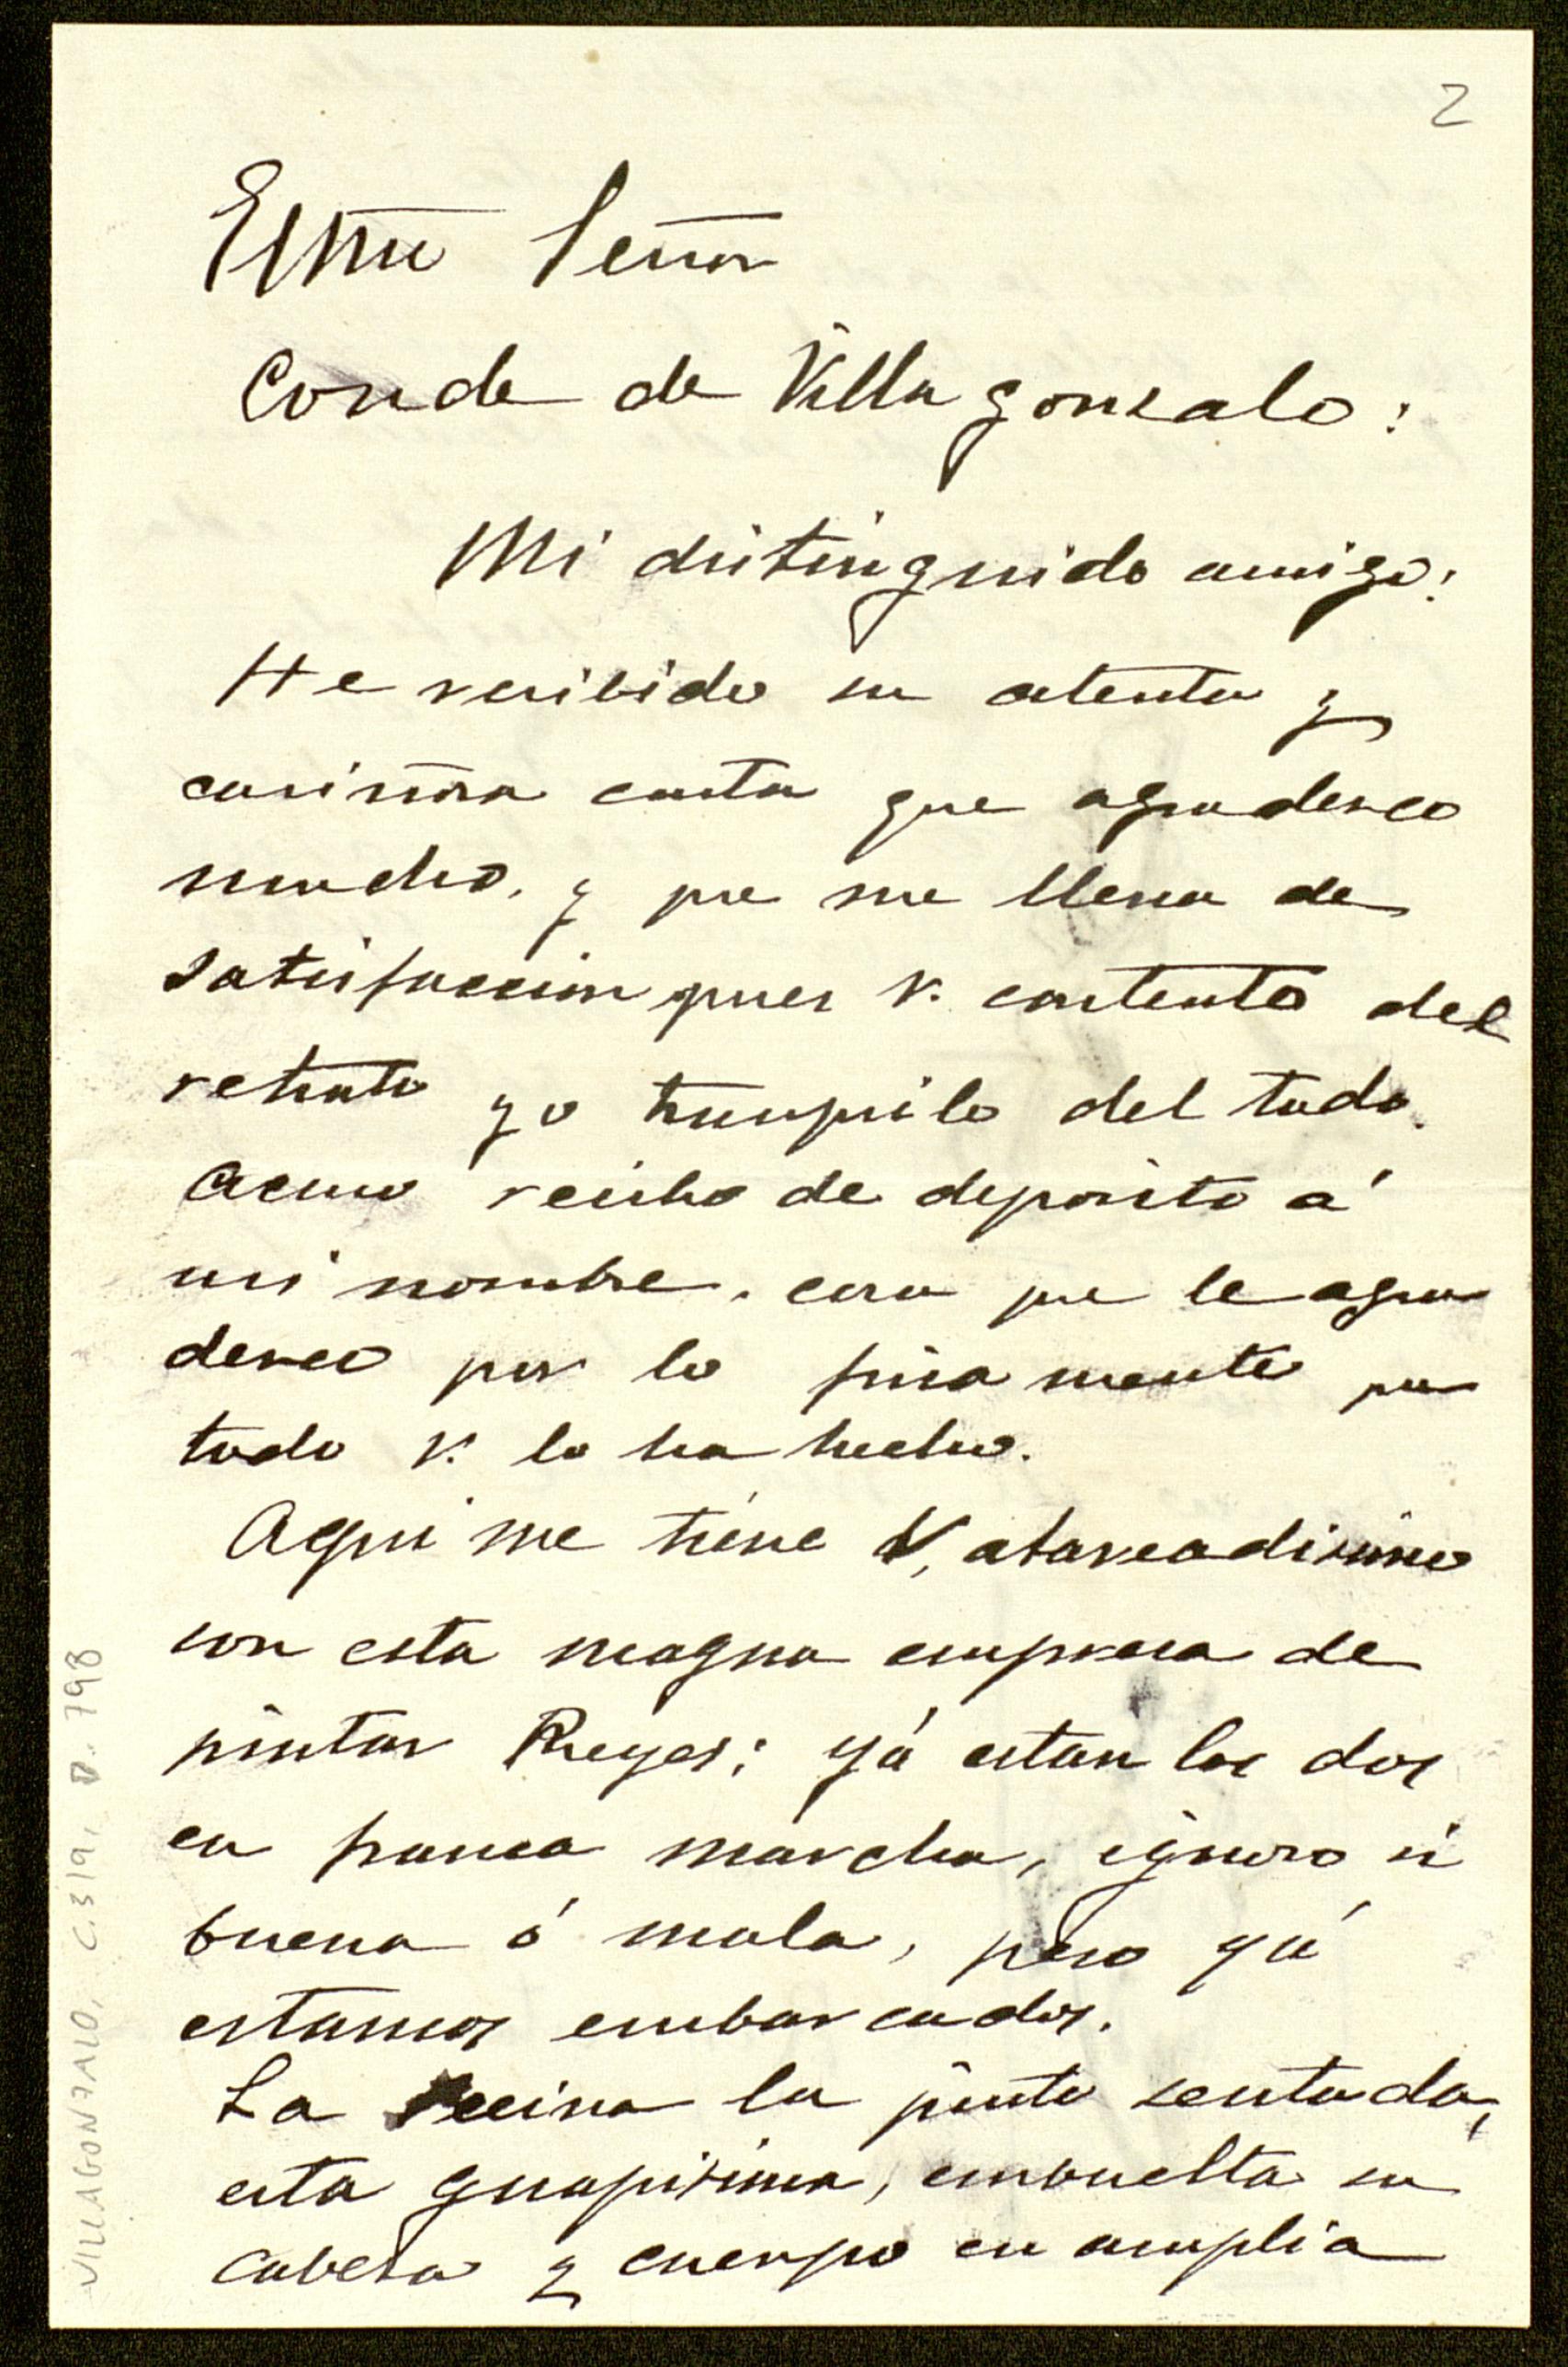 2
Exmo Señor
Conde de Villagonzalo:
Mi distinguido amigo:
He recibido su atenta y
cariñosa carta que agradezco
mucho. y que me llena de
satisfaccion pues V. contento del
retrato yo tranquilo del todo.
Acuso recibo de deposito á
mi nombre. cosa que le agra
dezco por lo fina mente que
todo V. lo ha hecho.
Aqui me tiene V, atareadisimo
con esta magna empresa de
pintar Reyes; yá estan los dos
en franca marcha, ignoro si
buena ó mala, pero yá
estamos embarcados.
La reina la pinto sentada,
esta guapisima, envuelta su
cabeza y cuerpo en amplia
VILLAGONZALO, C.319, D. 798